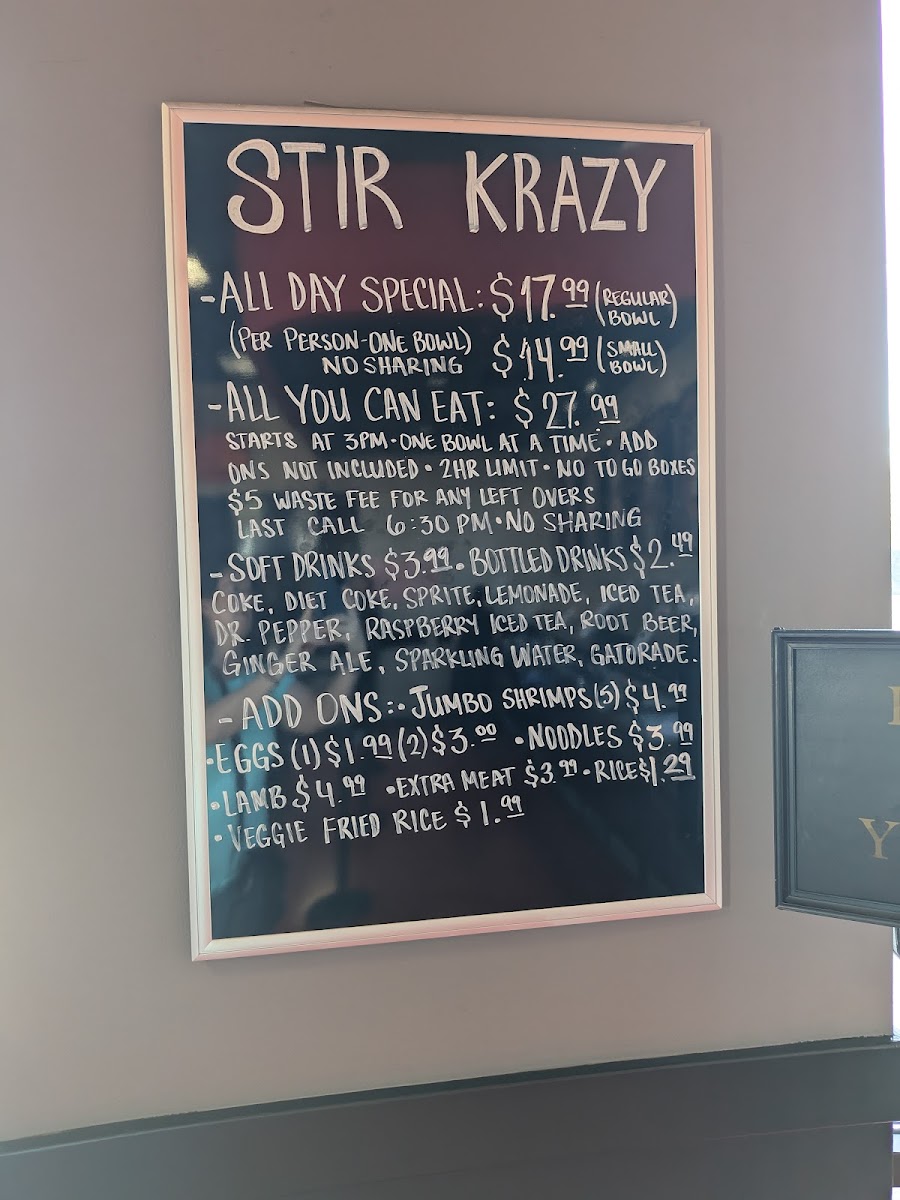 STIR KRAZY
-ALL DAY SPECIAL: $17.99 (REGULAR BOWL)
(PER PERSON-ONE BOWL) NO SHARING $14.99 (SMALL BOWL)
-ALL YOU CAN EAT: $27.99
STARTS AT 3PM • ONE BOWL AT A TIME • ADD
ONS NOT INCLUDED • 2HR LIMIT • NO TO GO BOXES
$5 WASTE FEE FOR ANY LEFT OVERS
LAST CALL 6:30 PM • NO SHARING
-SOFT DRINKS $3.99. BOTTLED DRINKS $2.49
COKE, DIET COKE, SPRITE, LEMONADE, ICED TEA,
DR. PEPPER, RASPBERRY ICED TEA, ROOT BEER,
GINGER ALE, SPARKLING WATER, GATORADE.
-ADD ONS: • JUMBO SHRIMPS (5) $4.99
•EGGS (1) $1.99 (2) $3.00 •NOODLES $3.99
•LAMB $4.99 •EXTRA MEAT $3.99 •RICE $1.29
•VEGGIE FRIED RICE $1.99
Y